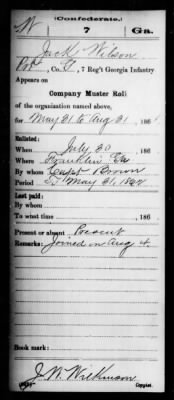 (Confederate.)
W 7 Ga.
Jack Wilson
Pvt, Co. C, 7 Reg't Georgia Infantry
Appears on
Company Muster Roll
of the organization named above,
for May 31 to Aug 31, 186
Enlisted:
When July 30, 186
Where Franklin Ga
By whom Capt Brown
Period
Last paid:
By whom
To what time , 186
Present or absent Present
Remarks: Joined on Aug 4.
Book mark:
J. W. Wilkinson
Copyist.